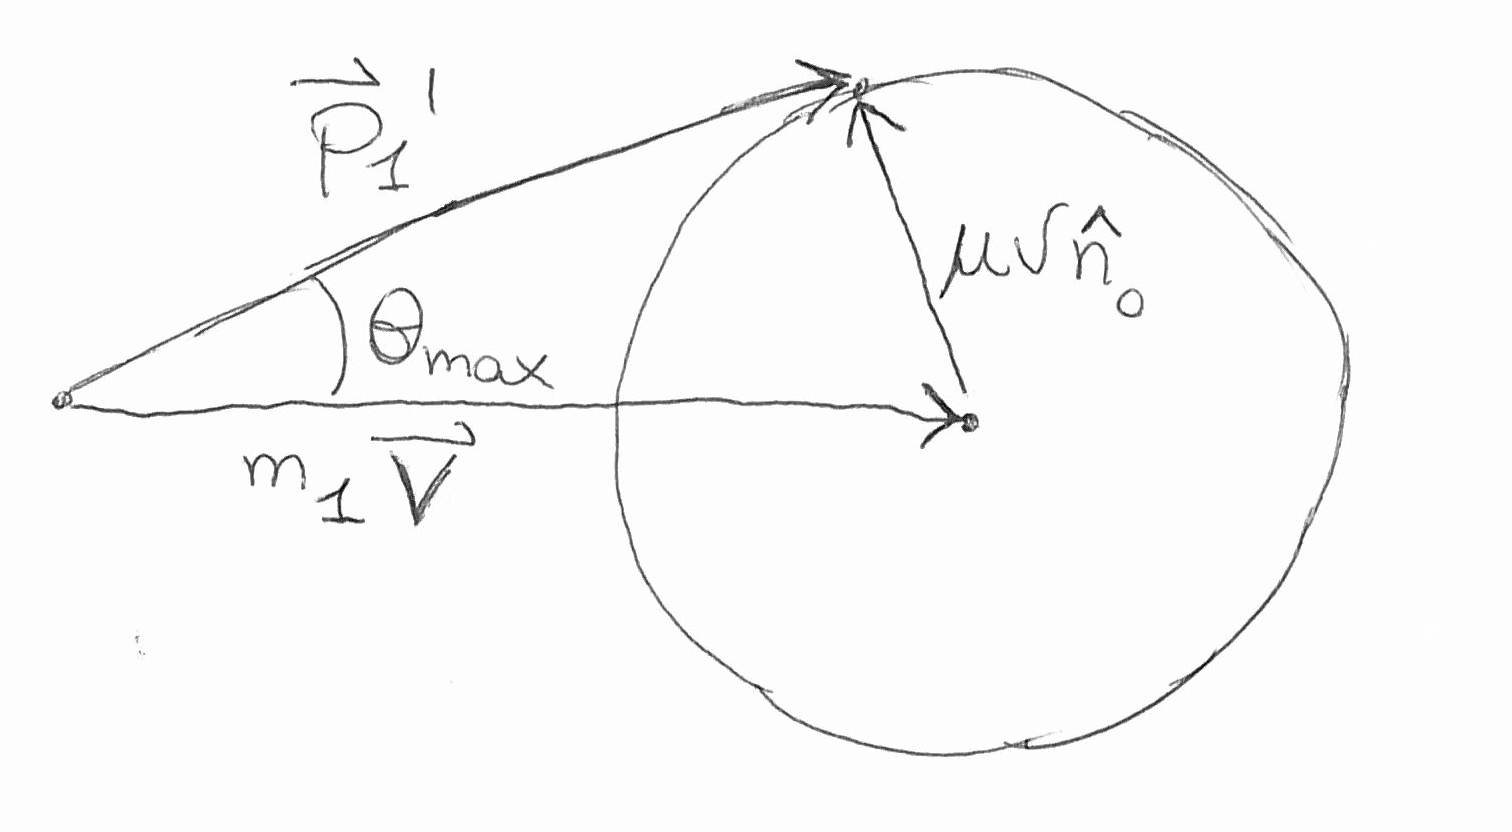 p⃗₁'
μv n̂₀
θmax
m₁ V⃗